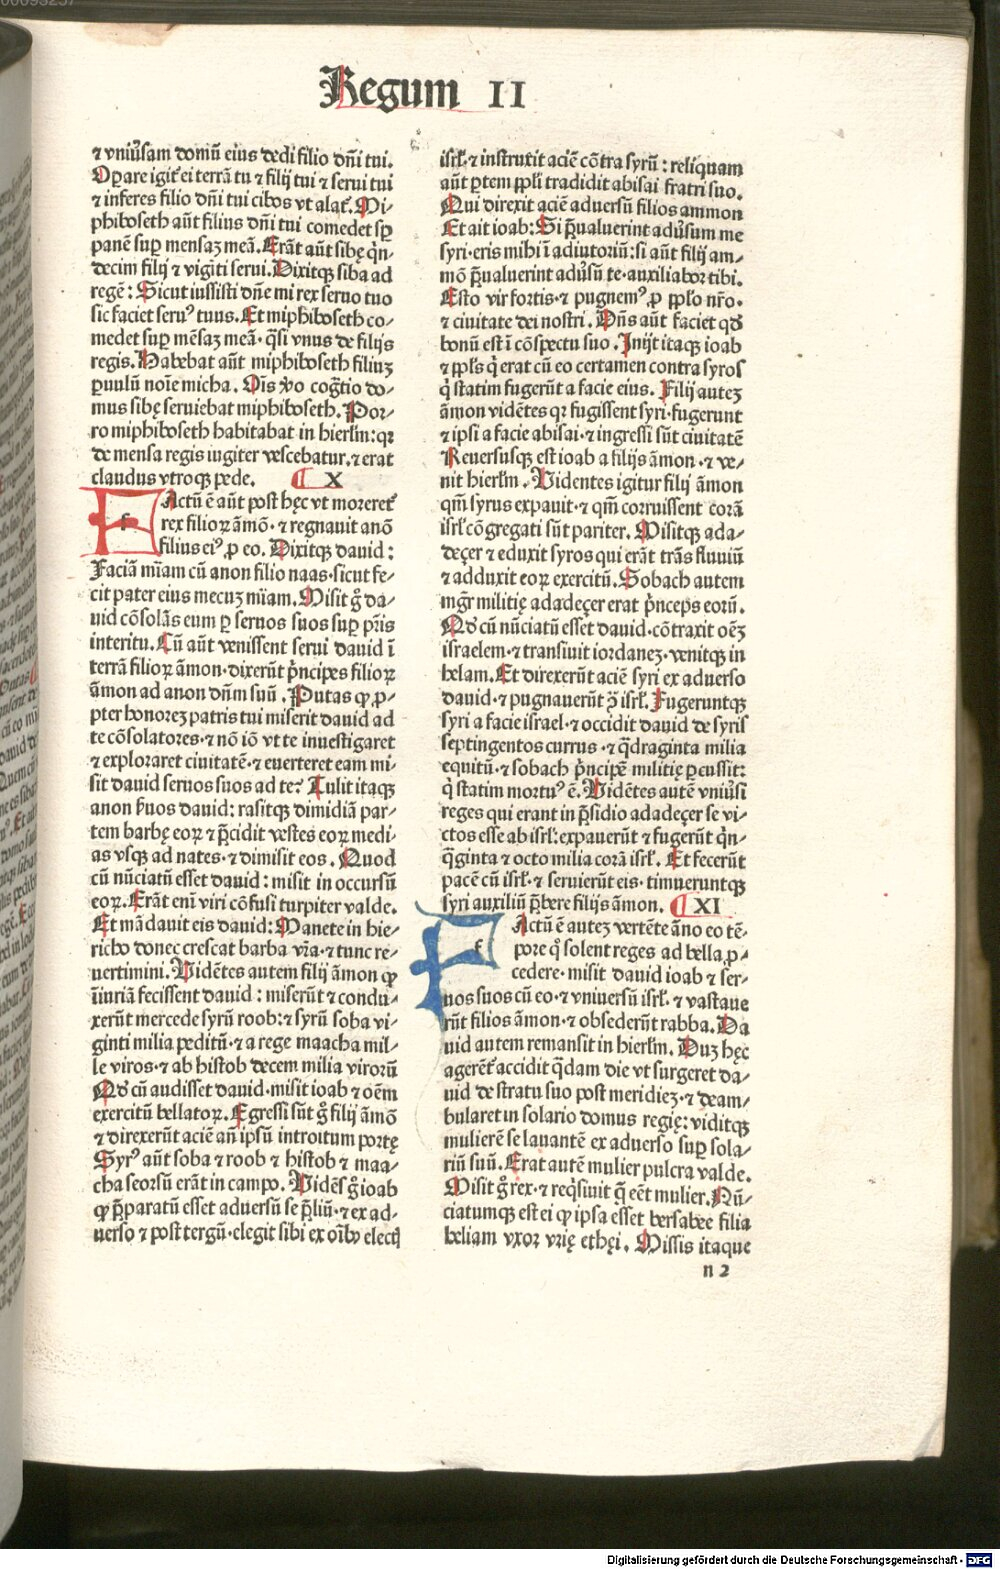 Regum II
⁊ vniũsam domũ eius dedi filio dñi tui.
Oꝑare igit̃ ei terrã tu ⁊ filij tui ⁊ serui tui
⁊ inferes filio dñi tui cibos vt alat̃. Mi-
phiboseth aũt filius dñi tui comedet sꝑ
panẽ suꝑ mensaz meã. Erãt aũt sibę q̃n-
decim filij ⁊ vigĩti serui. Dixitqꝫ siba ad
regẽ: Sicut iussisti dñe mi rex seruo tuo
sic faciet seruꝰ tuus. Et miphiboseth co-
medet suꝑ mẽsaz meã· q̃si vnus de filijs
regis. Habebat aũt miphiboseth filiuz
ꝑuulũ noĩe micha. Oĩs ꝟo cog̃tio do-
mus sibę seruiebat miphiboseth. Por-
ro miphiboseth habitabat in hierlm̃: qꝛ
de mensa regis iugiter vescebatur. ⁊ erat
claudus vtroqꝫ pede. X
f Actũ ẽ aũt post hęc vt moreret̃
rex filioꝝ ãmõ· ⁊ regnauit anõ
filius eiꝰ ꝓ eo. Dixitqꝫ dauid:
Faciã mĩam cũ anon filio naas· sicut fe-
cit pater eius mecuz mĩam. Misit g̃ da-
uid cõsolãs eum ꝑ seruos suos suꝑ pr̃is
interitu. Cũ aũt venissent serui dauid ĩ
terrã filioꝝ ãmon· dixerũt p̃ncipes filioꝝ
ãmon ad anon dñm suũ. Putas qꝙ ꝓ-
pter honorez patris tui miserit dauid ad
te cõsolatores· ⁊ nõ iõ vt te inuestigaret
⁊ exploraret ciuitatẽ· ⁊ euerteret eam mi-
sit dauid seruos suos ad te? Tulit itaqꝫ
anon ßuos dauid: rasitqꝫ dimidiã par-
tem barbę eoꝝ ⁊ p̃cidit vestes eoꝝ medi-
as vsqꝫ ad nates· ⁊ dimisit eos. Quod
cũ nũciatũ esset dauid: misit in occursũ
eoꝝ. Erãt eni viri cõfusi turpiter valde.
Et mãdauit eis dauid: Manete in hie-
richo donec crescat barba vr̃a· ⁊ tunc re-
uertimini. Vidẽtes autem filij ãmon qꝙ
ĩiuriã fecissent dauid: miserũt ⁊ condu-
xerũt mercede syrũ roob: ⁊ syrũ soba vi-
ginti milia peditũ· ⁊ a rege maacha mil-
le viros· ⁊ ab histob decem milia virorũ
Qd̃ cũ audisset dauid· misit ioab ⁊ oẽm
exercitũ bellatoꝝ. Egressi sũt g̃ filij ãmõ
⁊ direxerũt aciẽ añ ipsũ introitum portę
Syrꝰ aũt soba ⁊ roob ⁊ histob ⁊ maa-
cha seorsũ erãt in campo. Vidẽs g̃ ioab
qꝙ p̃paratũ esset aduersũ se p̃liũ· ⁊ ex ad-
uerso ⁊ post tergũ· elegit sibi ex oĩbꝰ electꝭ
isrl̃· ⁊ instruxit aciẽ cõtra syrũ: reliquam
aũt ꝑtem ppl̃i tradidit abisai fratri suo.
Qui direxit aciẽ aduersũ filios ammon
Et ait ioab: Si p̃ualuerint adũsum me
syri· eris mihi ĩ adiutoriũ: si aũt filij am-
mõ p̃ualuerint adũsũ te· auxiliabor tibi.
Esto vir fortis· ⁊ pugnemꝰ ꝓ pplo nr̃o·
⁊ ciuitate dei nostri. Dñs aũt faciet qd̃
bonũ est ĩ cõspectu suo. Inijt itaqꝫ ioab
⁊ ppl̃s q̃ erat cũ eo certamen contra syros
q̃ statim fugerũt a facie eius. Filij autez
ãmon vidẽtes qꝛ fugissent syri· fugerunt
⁊ ipsi a facie abisai· ⁊ ingressi sũt ciuitatẽ
Reuersusqꝫ est ioab a filijs ãmon· ⁊ ve-
nit hierlm̃. Videntes igitur filij ãmon
qm̃ syrus expauit· ⁊ qm̃ corruissent corã
isrl̃ cõgregati sũt pariter. Misitqꝫ ada-
deçer ⁊ eduxit syros qui erãt trãs fluuiũ
⁊ adduxit eoꝝ exercitũ. Sobach autem
mg̃r militię adadeçer erat p̃nceps eorũ.
Qd̃ cũ nũciatũ esset dauid· cõtraxit oẽz
israelem· ⁊ transiuit iordanez· venitqꝫ in
helam. Et direxerũt aciẽ syri ex aduerso
dauid· ⁊ pugnauerũt ↄ̃ isrl̃. Fugeruntqꝫ
syri a facie israel· ⁊ occidit dauid de syris
septingentos currus· ⁊ q̃draginta milia
equitũ· ⁊ sobach p̃ncipẽ militię ꝑcussit:
q̃ statim mortuꝰ ẽ. Vidẽtes autẽ vniũsi
reges qui erant in p̃sidio adadeçer se vi-
ctos esse ab isrl̃: expauerũt ⁊ fugerũt q̃n-
q̃ginta ⁊ octo milia corã isrl̃. Et fecerũt
pacẽ cũ isrl̃· ⁊ seruierũt eis· timueruntqꝫ
syri auxiliũ p̃bere filijs ãmon. XI
f Actũ ẽ autez vertẽte ãno eo tẽ-
pore q̃ solent reges ad bella ꝓ-
cedere· misit dauid ioab ⁊ ser-
uos suos cũ eo· ⁊ vniuersũ isrl̃· ⁊ vastaue
rũt filios ãmon· ⁊ obsederũt rabba. Da
uid autem remansit in hierlm̃. Duz hęc
agerẽt̃ accidit q̃dam die vt surgeret da-
uid de stratu suo post meridiez· ⁊ deam-
bularet in solario domus regię: viditqꝫ
mulierẽ se lauantẽ ex aduerso suꝑ sola-
riũ suũ. Erat autẽ mulier pulcra valde.
Misit g̃ rex· ⁊ req̃siuit q̃ eẽt mulier. Nũ-
ciatumqꝫ est ei qꝙ ipsa esset bersabee filia
heliam vxor vrię ethęi. Missis itaque
n 2
Digitalisierung gefördert durch die Deutsche Forschungsgemeinschaft - DFG